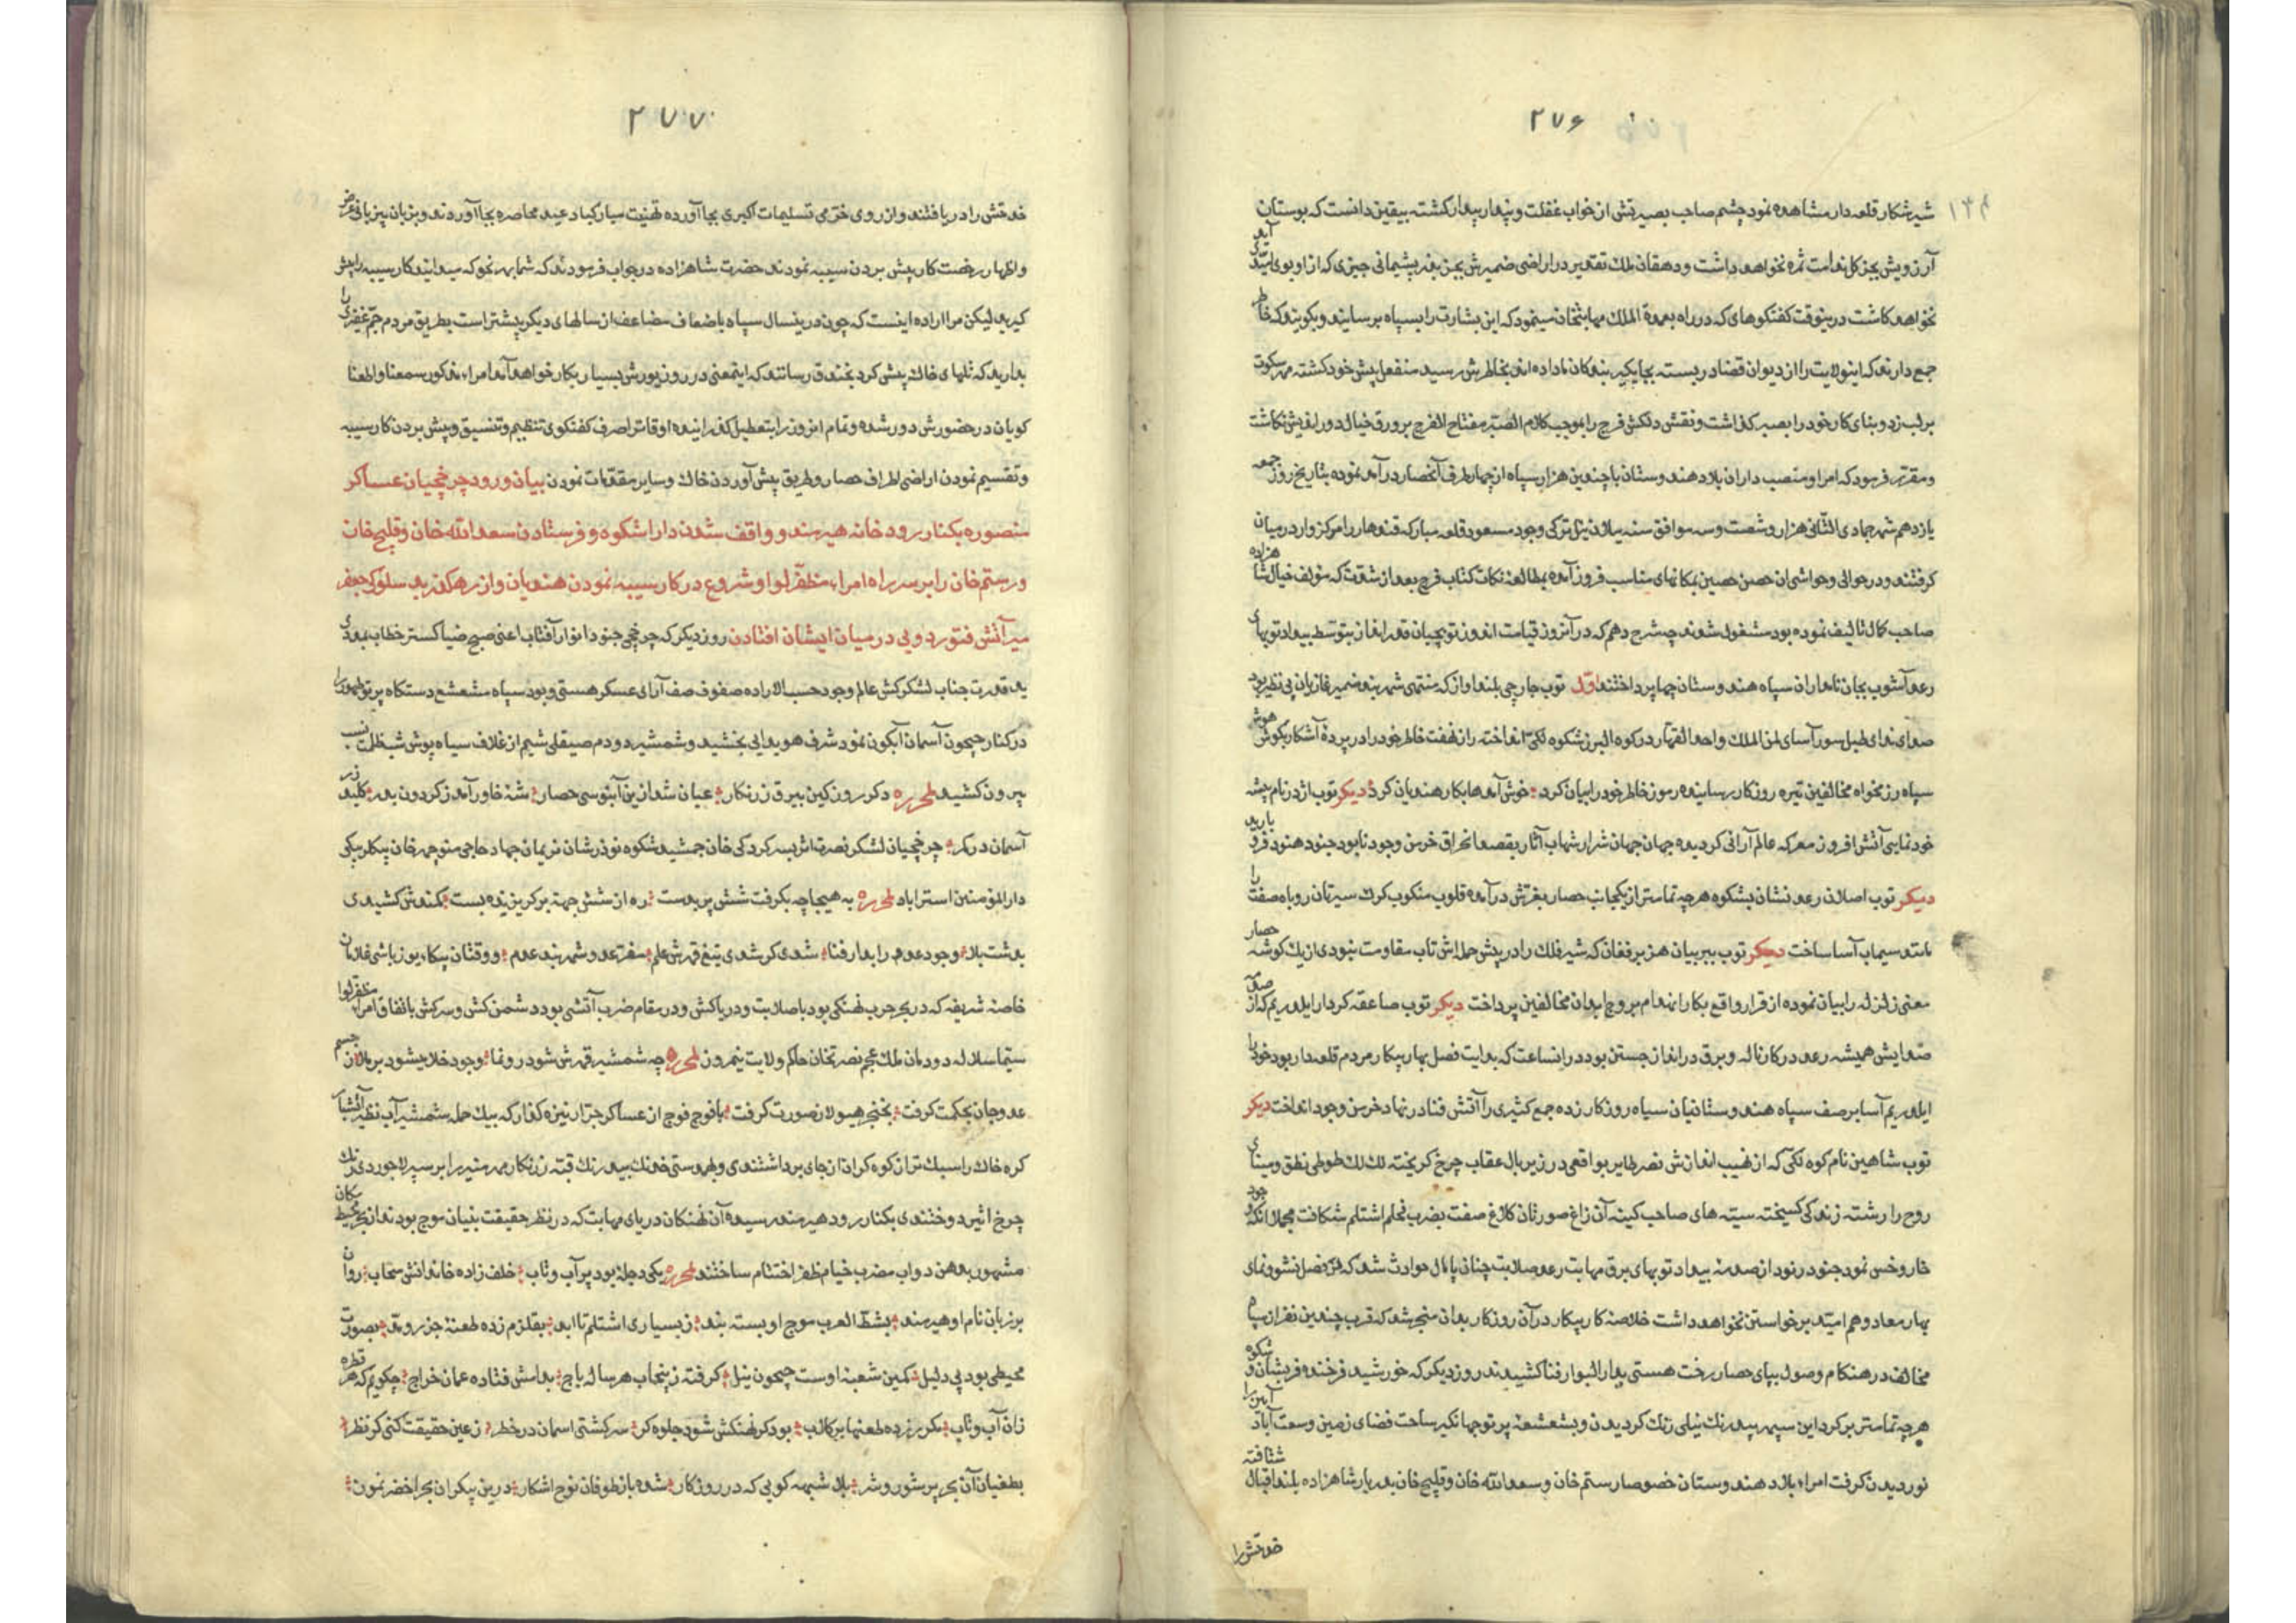 ۲۷۶
۱۳۴
شیرشکار قلعه‌دار مشاهده نمود چشم صاحب بصیرتش از خواب غفلت و پندار بیدار کشته بیقین دانست که بوستان
آرزویش بجز کل ندامت ثمره نخواهد داشت و دهقان ملک تقدیر در اراضی ضمیرش بجز بذر پشیمانی چیزی که از او بوی امید آید
نخواهد کاشت درینوقت کفتکوهای که در راه بعمدة الملک مهابتخان مینمود که این بشارت را بسپاه برسانید و بکویید که خاطر
جمع دارند که اینولایت را از دیوان قضا دربست بجایکیر بندکان ما داده‌اند بخاطرش رسید منفعل پیش خود کشته مهر سکوت
بر لب زد و بنای کار خود را بصبر کذاشت و نقش دلکش فرج را بموجب کلام الصبر مفتاح الفرج بر ورق خیال دوراندیش نکاشت
و مقرر فرمود که امرا و منصب‌داران بلاد هندوستان با چندین هزار سپاه از چهار طرف آنحصار درآمد نموده بتاریخ روز جمعه
یازدهم شهر جمادی الثانی هزار و شصت و سه موافق سنه ییلان ئیل ترکی وجود مسعود قلعه مبارکه قندهار را مرکزوار در میان
کرفتند و در حوالی و حواشی آن حصن حصین بمکانهای مناسب فرود آمده بمطالعه نکات کتاب فرج بعد از شدت که مؤلف خیال شاهزاده
صاحب کمال تالیف نموده بود مشغول شوند چه شرح دهم که در آنروز قیامت اندوز توپچیان قدرانداز بتوسط بیداد توپهای
رعد آشوب بجان نامداران سپاه هندوستان چها پرداختند اول توپ جارچی بلند آواز که منتهی شهر بند ضمیر غازیان بی نظیر بود
صدای ندای طبل سور آسای لمن الملک واحد القهار در کوه البرز شکوه لکی انداخته راز نهفت خاطر خود را در پردهٔ آشکار بکوش هوش
سپاه رزمخواه مخالفین تیره روزکار رسانیده رموز خاطر خود را بیان کرد خوش آمدها بکار هندیان کرد دیکر توپ اژدر نام پیشه
خودنمایی آتش‌افروز معرکه عالم‌آرائی کردیده جهان جهان شرار شهاب آثار بقصد احراق خرمن وجود نابود جنود هنود فرو بارید
دیکر توپ اصلان رعد نشان بشکوه هرچه تمامتر از یکجانب حصار بغرش درآمده قلوب منکوب کرک سیرتان روباه صفت را
مانند سیماب آسا ساخت دیکر توپ ببر بیان هزبر فغان که شیر فلک را در پیش حمله‌اش تاب مقاومت نبودی از یک کوشه حصار
معنی زلزله را بیان نموده از قرار واقع بکار انهدام بروج ابدان مخالفین پرداخت دیکر توپ صاعقه کردار ایلدرم که از صدمه
صدایش همیشه رعد در کار ناله و برق در انداز جستن بود در انساعت که بدایت فصل بهار پیکار مردم قلعه‌دار بود خود را
ایلدرم آسا بر صف سپاه هندوستانیان سیاه روزکار زده جمع کثیری را آتش فنا در نهاد خرمن وجود انداخت دیکر
توپ شاهین نام کوه لکی که از نهیب اندازش نصر طایر بواقعی در زیر بال عقاب چرخ کریخته لک لک طوطی نطق و مینای
روح را رشته زندکی کسیخته سینه های صاحب کینه آن زاغ صورتان کلاغ صفت بضرب نحلم اشتلم شکافت مجملا آنکه وجود
خار و خس نمود جنود مردود از صدمهٔ بیداد توپهای برق مهابت رعد صلابت چنان پامال حوادث شد که در فصل نشو و نمای
بهار معاد و هم امید برخواستن نخواهد داشت خلاصه کار پیکار در آن روزکار بدان منجر شد که قرب چندین نفر از سپاه
مخالف در هنکام وصول بپای حصار رخت هستی بدار البوار فنا کشیدند روز دیکر که خورشید فرخنده فر بشان و شکوه
هرچه تمامتر بر کرد این سپهر پید رنک نیلی رنک کردیدن و بشعشعه پرتو جهانکیر ساحت فضای زمین وسعت آباد آیین را
نوردیدن کرفت امراء بلاد هندوستان خصوصا رستم خان و سعد الله خان و قلیج خان بدربار شاهزاده بلند اقبال شتافته
خدمتش را
۲۷۷
خدمتش را دریافتند و از روی خرمی تسلیمات اکبری بجا آورده تهنیت مبارکباد عید محاصره بجا آوردند و بزبان بیزبانی عرض
و اظهار رخصت کار پیش بردن سیبه نمودند حضرت شاهزاده در جواب فرمودند که شما بهر نحو که میدانید کار سیبه را پیش
کیرید لیکن مرا اراده اینست که چون درینسال سپاه باضعاف مضاعف از سالهای دیکر بیشتر است بطریق مردم جم غفیری را
بدارید که تلهای خاک پیش کرد بخندق رسانند که اینمعنی در روز یورش بسیار بکار خواهد آمد امراء مذکور سمعنا و اطعنا
کویان در حضورش دور شده و تمام انروز را بتعطیل کذرانیده اوقات را صرف کفتکوی تنظیم و تنسیق و پیش بردن کار سیبه
و تقسیم نمودن اراضی اطراف حصار و طریق پیش آوردن خاک و سایر مقدمات نمودن بیان ورود چرخچیان عساکر
منصوره بکنار رودخانه هیرمند و واقف شدن داراشکوه و فرستادن سعد الله خان و قلیج خان
و رستم خان را بر سر راه امراء مظفر لوا و شروع در کار سیبه نمودن هندیان و از رهکذر بد سلوکی جعفر
میر آتش فتور دویی در میان ایشان افتادن روز دیکر که چرخچی جنود انوار آفتاب اعنی صبح ضیا کستر خطاب بمددی
ید قدرت جناب لشکرکش عالم وجود حسب الاراده صفوف صف آرائی عسکر هستی و بود سپاه مشعشع دستکاه پرتو ظهور را
در کنار جیحون آسمان آبکون نمود شرف هویدایی بخشید و شمشیر دودم صیقلی شیم از غلاف سیاه پوش شب ظلمت نسب
بیرون کشید لمحرره دکر روز کین بیرق زرنکار عیان شد ازین آبنوسی حصار شه خاور آمد ز کردون بدر کلید زر
آسمان در بکر چرخچیان لشکر نصرت اثر بسرکردکی خان جمشید شکوه نوذرشان نریمان جهاد حاجی منوچهر خان بیکلربیکی
دارالمؤمنین استراباد لمحرره به هیجا چه بکرفت شش پر بدست ره از شش جهت بر کریزنده بست کمندش کشیدی
بدشت بلا وجود عدو را بدار فنا شدی کر شدی تیغ قهرش علم سفر عدو شهر بند عدم و وقتان بیکاء یوزباشی غلامان
خاصه شریفه که در بحر حرب نهنکی بود باصلابت و دریاکش و در مقام ضرب آتشی بود دشمن کش و سرکش باتفاق امراء مظفر لوا
سیما سلاله دودمان ملک عجم نصرتخان حاکم ولایت نیمروز لمحرره چه شمشیر قهرش شود رونما وجود خلا میشود بر ملا ز جسم
عدو جان بحکمت کرفت بخنجر هیولا ز صورت کرفت با فوج فوج از عساکر جرار نیزه کذار که بیک حمله شمشیر آب نظیر آتشبار
کره خاک را سبکتر از کوه کران از جای برداشتندی و بهر دستی خدنک بیدرنک قبه زرنکار مهر منیر را بر سپر لاجوردی رنک
چرخ اثیر دوختندی بکنار رود هیرمند رسیده آن نهنکان دریای مهابت که در نظر حقیقت بنیان موج بودند از بحر محیط بکان
مشهور بدهن دواب مضرب خیام ظفر اختتام ساختند لمحرره یکی دجله بود پر آب و تاب خلف زاده خاندانش سحاب روان
بر زبان نام او هیرمند بشط العرب موج او بسته بند ز بسیاری اشتلم تا ابد بقلزم زده طعنهٔ جزر و مد بصورت
محیطی بود بی دلیل کمین شعبه اوست جیحون نیل کرفته ز پنجاب هر ساله باج بدامش فتاده عمان خراج چکویم که هر قطره
زان آب و تاب مکرر زده طعنها بر کلاب بود کر نهنکش شود جلوه کر سر کشتی اسمان در خطر ز عین حقیقت کنی کر نظر
بطغیان آن بحر پر شور و شر بلا شبهه کویی که در روزکار شده باز طوفان نوح اشکار درین بیکران بحر اخضر نمون